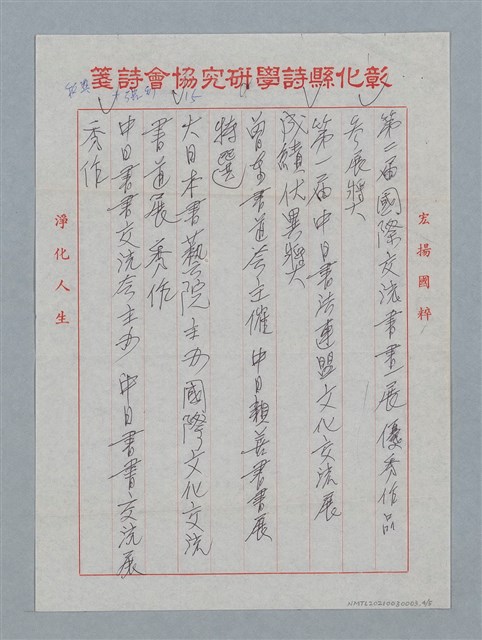 彰化縣詩學研究協會詩箋
宏揚國粹
第二届國際交流書畫展優秀作品
参展獎
第一届中日書法連盟文化交流展
成績優異獎
曾来書道会主催中日親善書書展
特選
大日本書藝院主办國際文化交流
書道展秀作
中日書書交流会主办中日書書交流展
秀作
淨化人生
NMTL20210030003 4/5